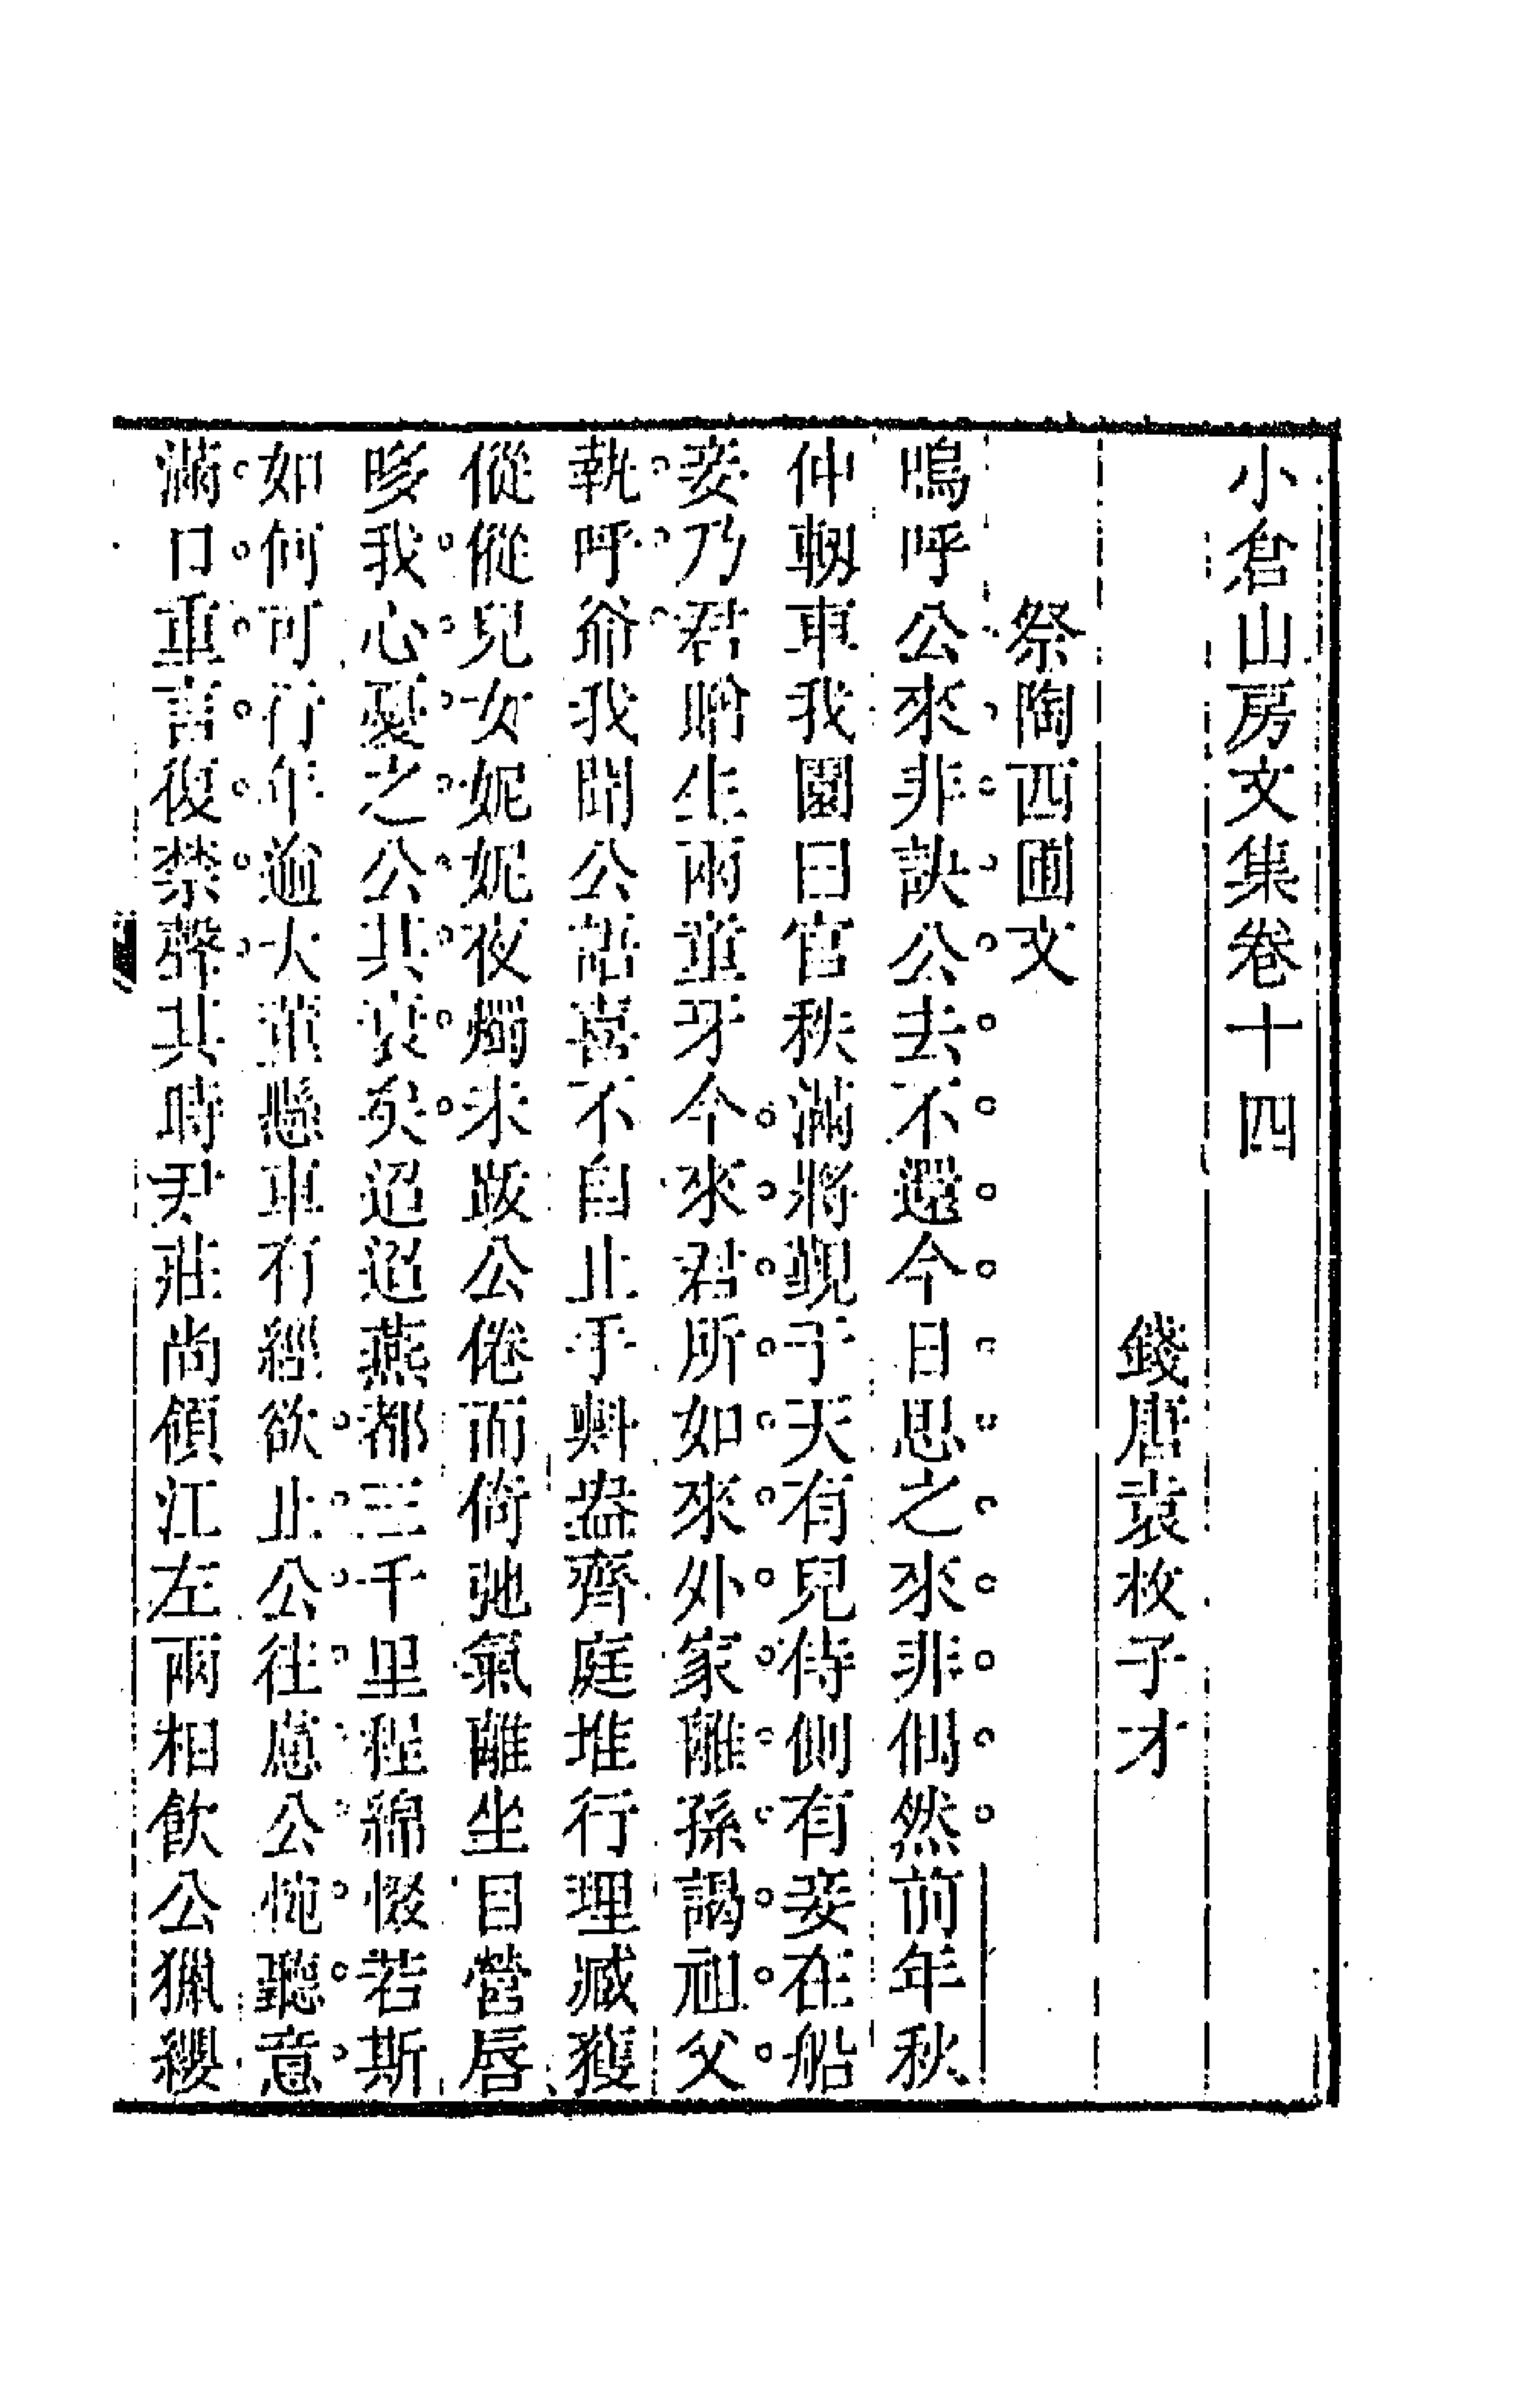 小倉山房文集卷十四
錢唐袁枚子才
祭陶西圃文
嗚呼公來非訣公去不還今日思之來非偶然前年秋
仲軔車我園曰官秩滿將覲于天有兒侍側有妾在船
妾乃君贈生兩童牙今來君所如來外家雛孫謁祖父
執呼爺我聞公語喜不自止手㪺盎齊庭堆行理臧獲
傱傱兒女妮妮夜燭未跋公倦而倚弛氣離坐目營唇
哆我心憂之公其衰矣迢迢燕都三千里程綿惙若斯
如何可行年逾大董懸車有經欲止公往慮公怐聽意
滿口重言復禁聲其時尹莊尚領江左兩相飲公獵纓